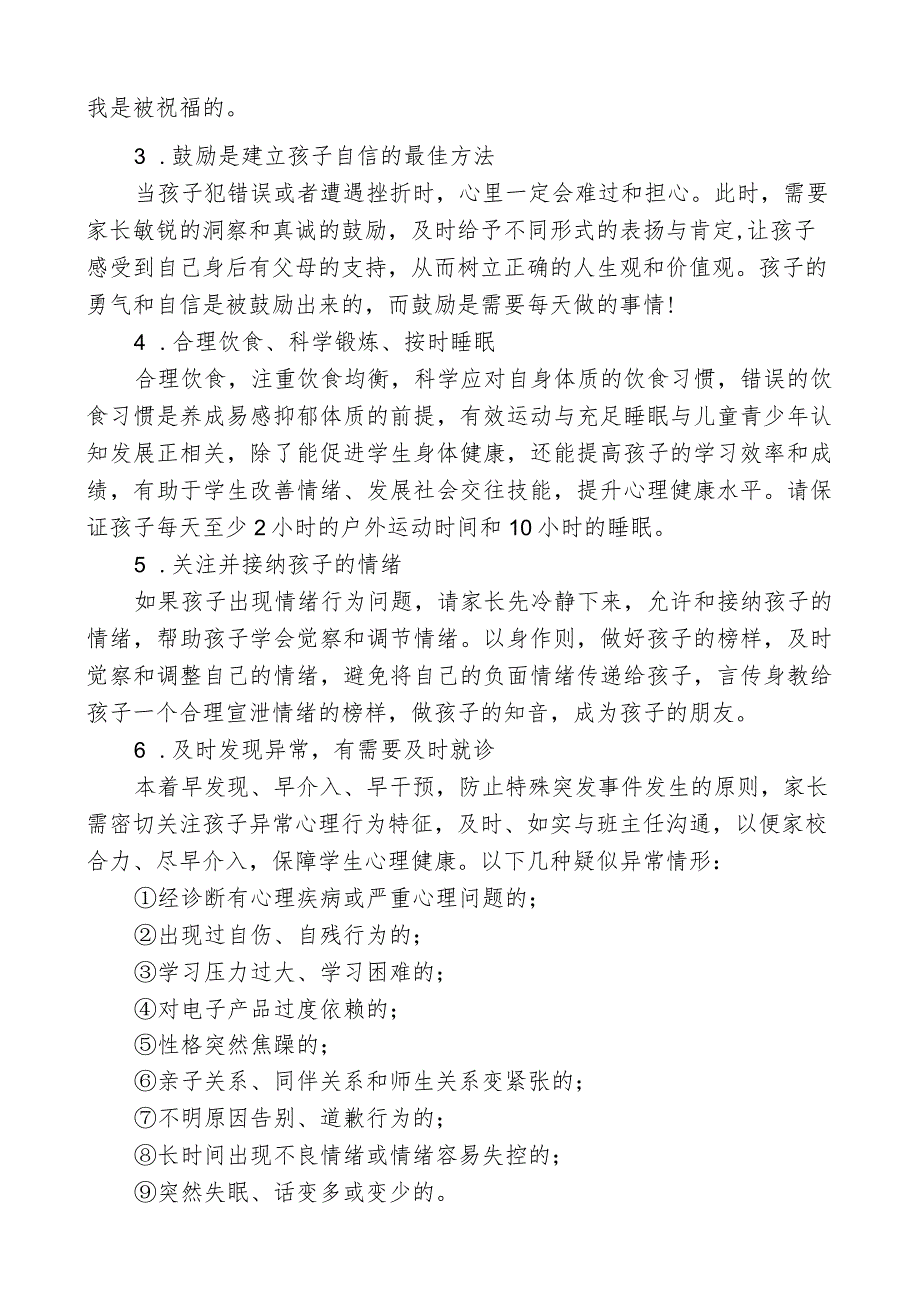 我是被祝福的。
3 . 鼓励是建立孩子自信的最佳方法
当孩子犯错误或者遭遇挫折时，心里一定会难过和担心。此时，需要
家长敏锐的洞察和真诚的鼓励，及时给予不同形式的表扬与肯定,让孩子
感受到自己身后有父母的支持，从而树立正确的人生观和价值观。孩子的
勇气和自信是被鼓励出来的，而鼓励是需要每天做的事情!
4 . 合理饮食、科学锻炼、按时睡眠
合理饮食，注重饮食均衡，科学应对自身体质的饮食习惯，错误的饮
食习惯是养成易感抑郁体质的前提，有效运动与充足睡眠与儿童青少年认
知发展正相关，除了能促进学生身体健康，还能提高孩子的学习效率和成
绩，有助于学生改善情绪、发展社会交往技能，提升心理健康水平。请保
证孩子每天至少2小时的户外运动时间和10小时的睡眠。
5 . 关注并接纳孩子的情绪
如果孩子出现情绪行为问题，请家长先冷静下来，允许和接纳孩子的
情绪，帮助孩子学会觉察和调节情绪。以身作则，做好孩子的榜样，及时
觉察和调整自己的情绪，避免将自己的负面情绪传递给孩子，言传身教给
孩子一个合理宣泄情绪的榜样，做孩子的知音，成为孩子的朋友。
6 . 及时发现异常，有需要及时就诊
本着早发现、早介入、早干预，防止特殊突发事件发生的原则，家长
需密切关注孩子异常心理行为特征，及时、如实与班主任沟通，以便家校
合力、尽早介入，保障学生心理健康。以下几种疑似异常情形：
①经诊断有心理疾病或严重心理问题的；
②出现过自伤、自残行为的；
③学习压力过大、学习困难的；
④对电子产品过度依赖的；
⑤性格突然焦躁的；
⑥亲子关系、同伴关系和师生关系变紧张的；
⑦不明原因告别、道歉行为的；
⑧长时间出现不良情绪或情绪容易失控的；
⑨突然失眠、话变多或变少的。